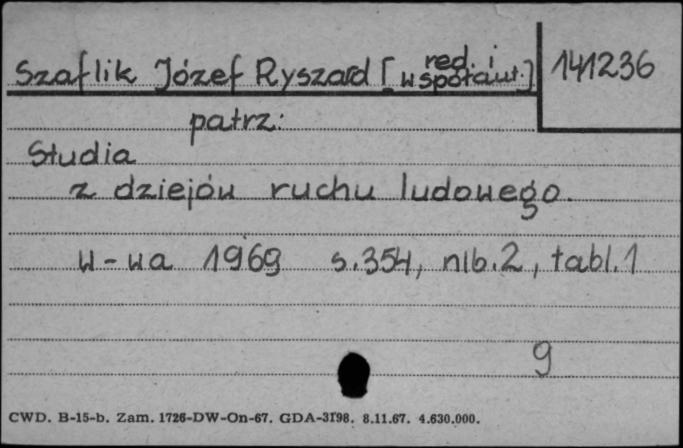 Szaflik Józef Ryszard [red. i współaut.] 141236
patrz:
Studia
z dziejów ruchu ludowego.
W-wa 1969 s.354, nlb.2, tabl.1
9
CWD. B-15-b. Zam. 1726-DW-On-67. GDA-3198. 8.11.67. 4.630.000.